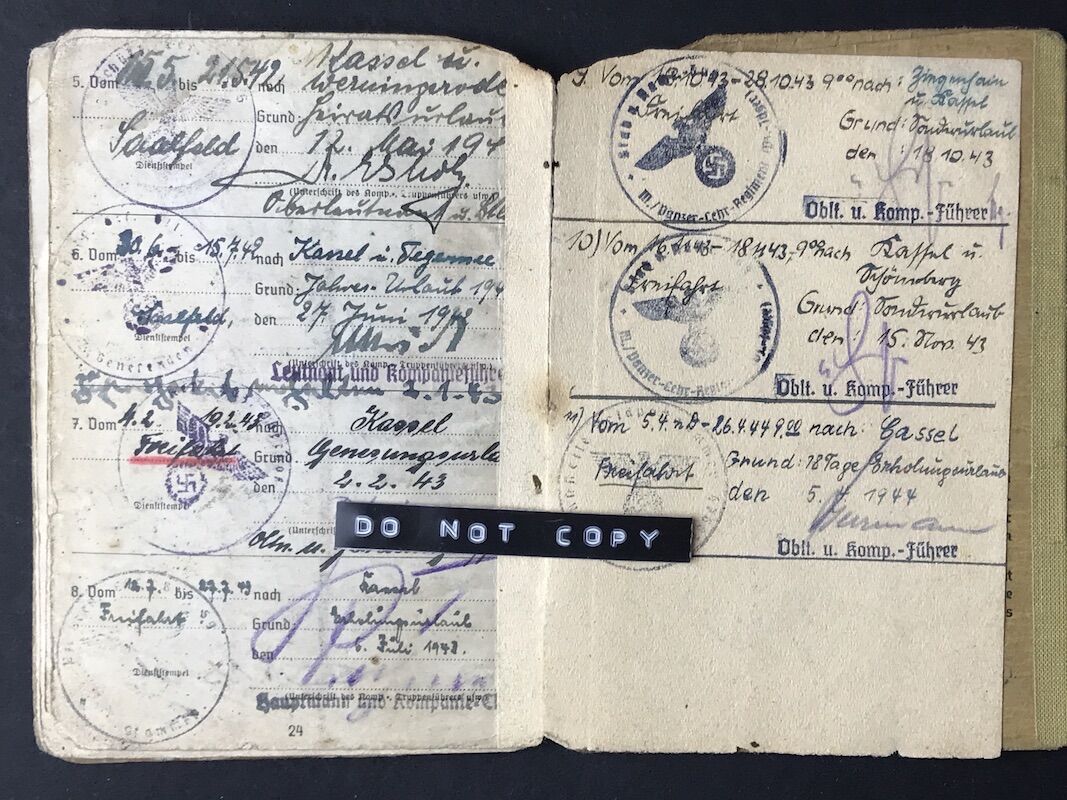 5. Vom 12.5. bis 21.5.42 nach Kassel u.
Wernigerode
Grund: Heiratsurlau
Saalfeld den 12. Mai 194
Dienststempel
(Unterschrift des Komp.- Truppenführers usw.)
Oberleutnant u.
6. Vom 30.6. bis 15.7.42 nach Kassel u. Tegernsee
Grund: Jahres-Urlaub 194
Saalfeld, den 27. Juni 1942
Dienststempel
(Unterschrift des Komp.- Truppenführers usw.)
Leutnant und Kompanieführe
2.1.43
7. Vom 4.2. 19.2.43 nach Kassel
Freifahrt Grund Genesungsurla
den 2.2.43
Dienststempel
(Unterschrift
DO NOT COPY
8. Vom 12.7. bis 27.7.43 nach Kassel
Freifahrt Grund: Erholungsurlaub
den 6. Juli 1943.
Dienststempel
(Unterschrift des Komp.- Truppenführers usw.)
Hauptmann und Kompanie-C
24
Vom 18.10.43 - 28.10.43 9⁰⁰ nach: Ziegenhain
u. Kassel
Freifahrt
Grund: Sonderurlaub
den: 18.10.43
Stab
III./Panzer-Lehr-Regiment
Oblt. u. Komp.-Führer
10) Vom 16.11.43 - 18.11.43, 9⁰⁰ nach Kassel u.
Schömberg
Freifahrt
Grund: Sonderurlaub
den: 15. Nov. 43
III./Panzer-Lehr-Regim
Oblt. u. Komp.-Führer
11) Vom 5.4. - 26.4.44 9.00 nach: Cassel
Freifahrt Grund: 18 Tage Erholungsurlaub
den 5.4. 1944
Oblt. u. Komp.-Führer